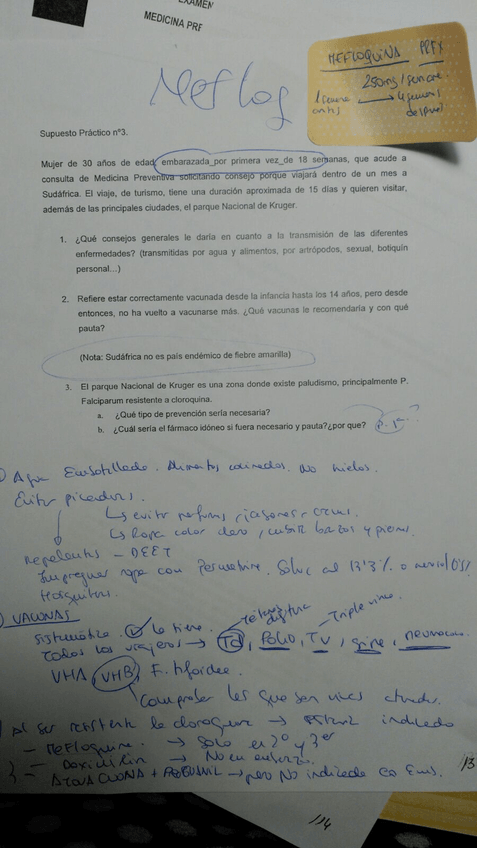 EXAMEN
MEDICINA PRE
MEFLOQUINA PRFX
250mg/semana
1 semana antes → 4 semanas después
Mefloq
Supuesto Práctico nº3.
Mujer de 30 años de edad, embarazada por primera vez de 18 semanas, que acude a
consulta de Medicina Preventiva solicitando consejo porque viajará dentro de un mes a
Sudáfrica. El viaje, de turismo, tiene una duración aproximada de 15 días y quieren visitar,
además de las principales ciudades, el parque Nacional de Kruger.
1. ¿Qué consejos generales le daría en cuanto a la transmisión de las diferentes
enfermedades? (transmitidas por agua y alimentos, por artrópodos, sexual, botiquín
personal...)
2. Refiere estar correctamente vacunada desde la infancia hasta los 14 años, pero desde
entonces, no ha vuelto a vacunarse más. ¿Qué vacunas le recomendaría y con qué
pauta?
(Nota: Sudáfrica no es país endémico de fiebre amarilla)
3. El parque Nacional de Kruger es una zona donde existe paludismo, principalmente P.
Falciparum resistente a cloroquina.
a. ¿Qué tipo de prevención sería necesaria?
b. ¿Cuál sería el fármaco idóneo si fuera necesario y pauta?¿por que?
Agua Embotellada. Alimentos cocinados. No hielos.
Evitar picaduras.
↳ evitar perfumes, jabones, cremas
↳ Ropa color claro, cubrir brazos y piernas.
Repelentes - DEET
Impregnar ropa con Permetrina. Soluc al 13'3% o
Mosquitera.
VACUNAS
Tétanos difteria Triple vírica
Sistemático. lo tiene.
Todos los viajeros → Td, POLIO, TV, gripe, neumococo
VHA VHB F. tifoidea.
Comprobar
Al ser resistente la cloroquina → indicado
- Mefloquina. → Solo en 2º y 3er
- Doxiciclina → No en embarazo.
- ATOVACUONA + PROGUANIL → pero No indicada en Emb.
13
114